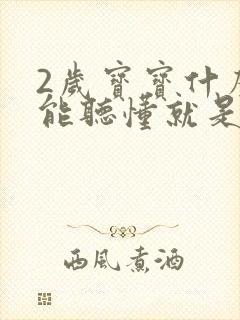 2歲寶寶什
能聽懂就是
西風煮酒